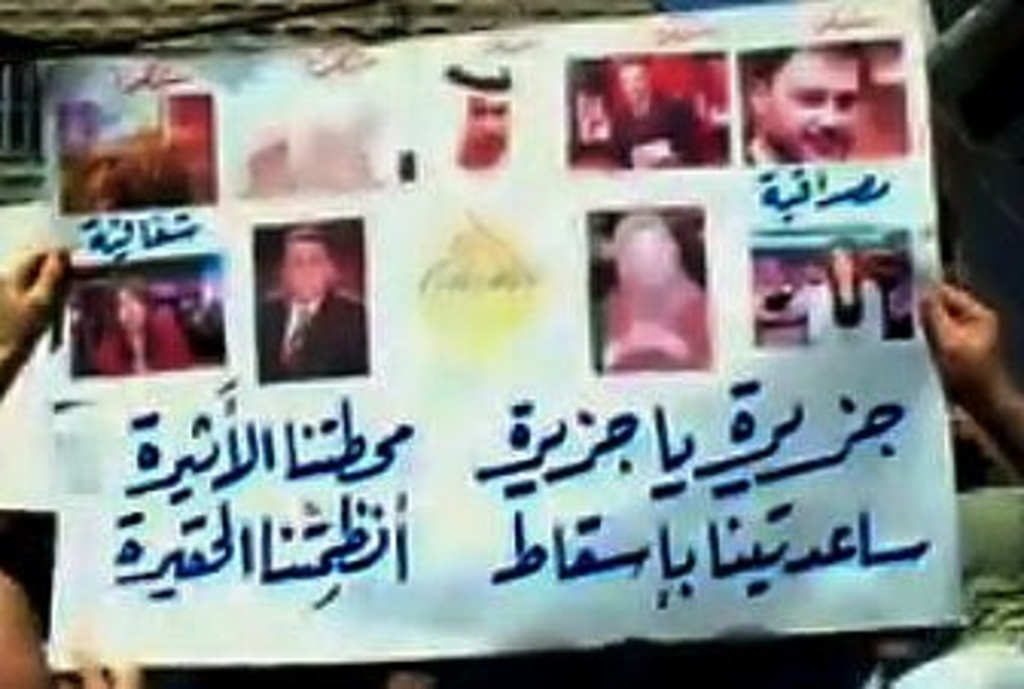 مصداقية
شفافية
جزيرة يا جزيرة محطتنا الأثيرة
ساعدتينا بإسقاط أنظمتنا الحقيرة